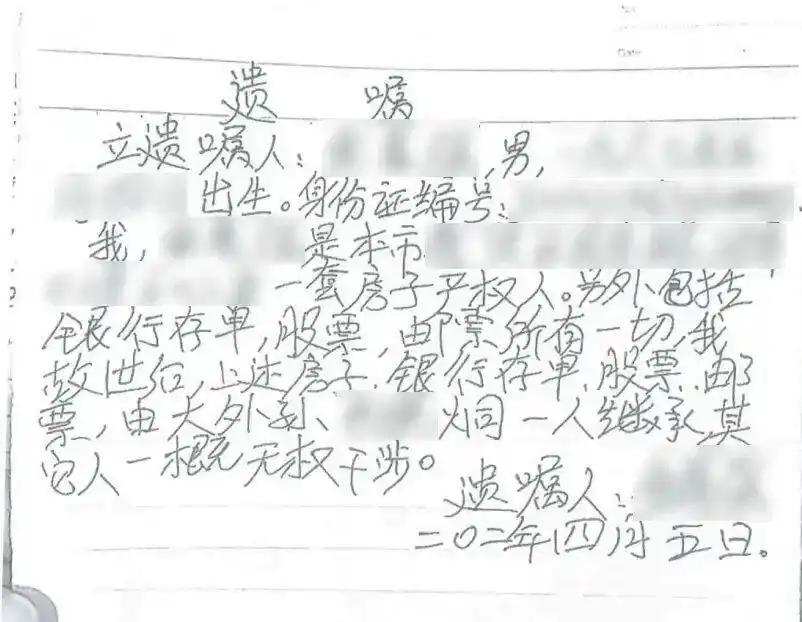 遗 嘱
立遗嘱人: ,男,
出生。身份证编号:
我, 是本市
一套房子产权人。另外包括
银行存单,股票,邮票所有一切,我
故世后,上述房子.银行存单.股票.邮
票,由大外孙、 炯一人继承,其
它人一概无权干涉。
遗嘱人:
二〇二年四月五日。